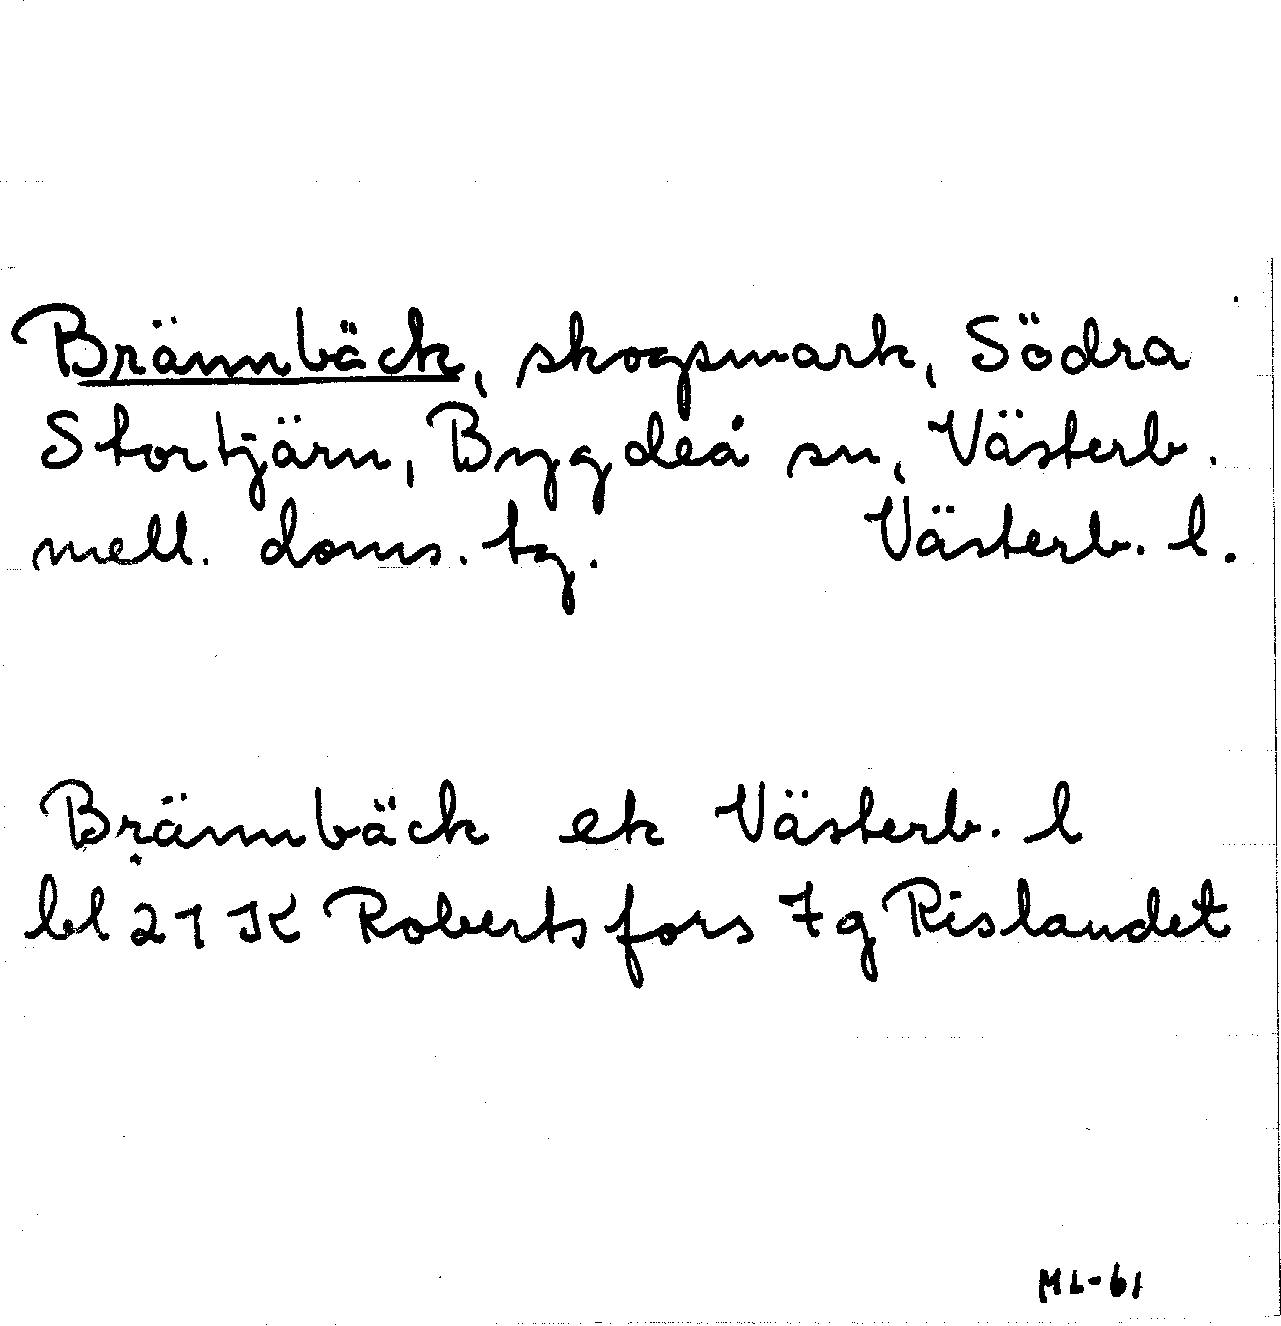 Brännbäck, skogsmark, Södra
Stortjärn, Bygdeå sn, Västerb.
mell. doms. tg. Västerb. l.
Brännbäck ek Västerb. l
bl 21 K Robertsfors 7g Rislandet
ML-61